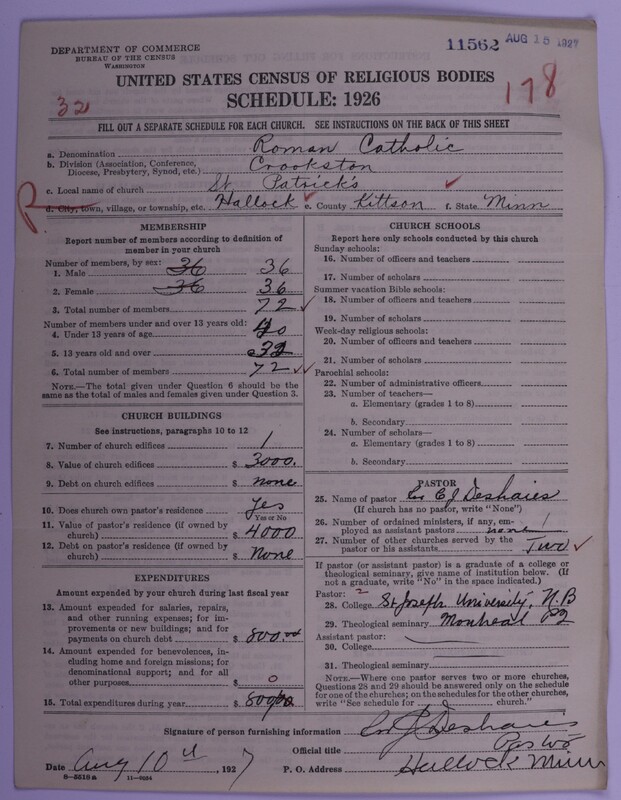 DEPARTMENT OF COMMERCE
BUREAU OF THE CENSUS
WASHINGTON
11562 AUG 15 1927
UNITED STATES CENSUS OF RELIGIOUS BODIES
SCHEDULE: 1926
32
178
FILL OUT A SEPARATE SCHEDULE FOR EACH CHURCH. SEE INSTRUCTIONS ON THE BACK OF THIS SHEET
a. Denomination Roman Catholic
b. Division (Association, Conference, Diocese, Presbytery, Synod, etc.) Crookston
c. Local name of church St. Patrick's
R. d. City, town, village, or township, etc. Hallock e. County Kittson f. State Minn
MEMBERSHIP
Report number of members according to definition of
member in your church
Number of members, by sex:
1. Male 36 36
2. Female 36 36
3. Total number of members 72
Number of members under and over 13 years old:
4. Under 13 years of age 40
5. 13 years old and over 32
6. Total number of members 72
NOTE.—The total given under Question 6 should be the
same as the total of males and females given under Question 3.
CHURCH BUILDINGS
See instructions, paragraphs 10 to 12
7. Number of church edifices 1
8. Value of church edifices $ 3000.
9. Debt on church edifices $ none
10. Does church own pastor's residence Yes
Yes or No
11. Value of pastor's residence (if owned by
church) $ 4000
12. Debt on pastor's residence (if owned by
church) $ None
EXPENDITURES
Amount expended by your church during last fiscal year
13. Amount expended for salaries, repairs,
and other running expenses; for im-
provements or new buildings; and for
payments on church debt $ 800.00
14. Amount expended for benevolences, in-
cluding home and foreign missions; for
denominational support; and for all
other purposes $ 0
15. Total expenditures during year $ 800.00
CHURCH SCHOOLS
Report here only schools conducted by this church
Sunday schools:
16. Number of officers and teachers
17. Number of scholars
Summer vacation Bible schools:
18. Number of officers and teachers
19. Number of scholars
Week-day religious schools:
20. Number of officers and teachers
21. Number of scholars
Parochial schools:
22. Number of administrative officers
23. Number of teachers—
a. Elementary (grades 1 to 8)
b. Secondary
24. Number of scholars—
a. Elementary (grades 1 to 8)
b. Secondary
PASTOR
25. Name of pastor C J Deshaies
(If church has no pastor, write "None")
26. Number of ordained ministers, if any, em-
ployed as assistant pastors none
27. Number of other churches served by the
pastor or his assistants Two
If pastor (or assistant pastor) is a graduate of a college or
theological seminary, give name of institution below. (If
not a graduate, write "No" in the space indicated.)
Pastor: 2
28. College St Joseph University, N.B
29. Theological seminary Montreal PQ
Assistant pastor:
30. College
31. Theological seminary
NOTE.—Where one pastor serves two or more churches,
Questions 28 and 29 should be answered only on the schedule
for one of the churches; on the schedules for the other churches,
write "See schedule for church."
Signature of person furnishing information J Deshaies
Official title Pastor
Date Aug 10th, 1927 P. O. Address Hallock Minn
8-5518a 11-9224